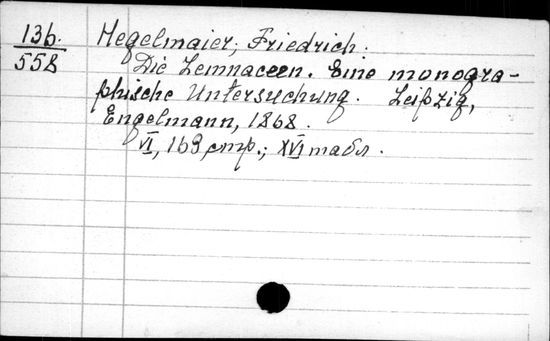 136.
558
Hegelmaier, Friedrich.
Die Lemnaceen. Eine monogra-
phische Untersuchung. Leipzig,
Engelmann, 1868.
VI, 169 стр.; XVI табл.